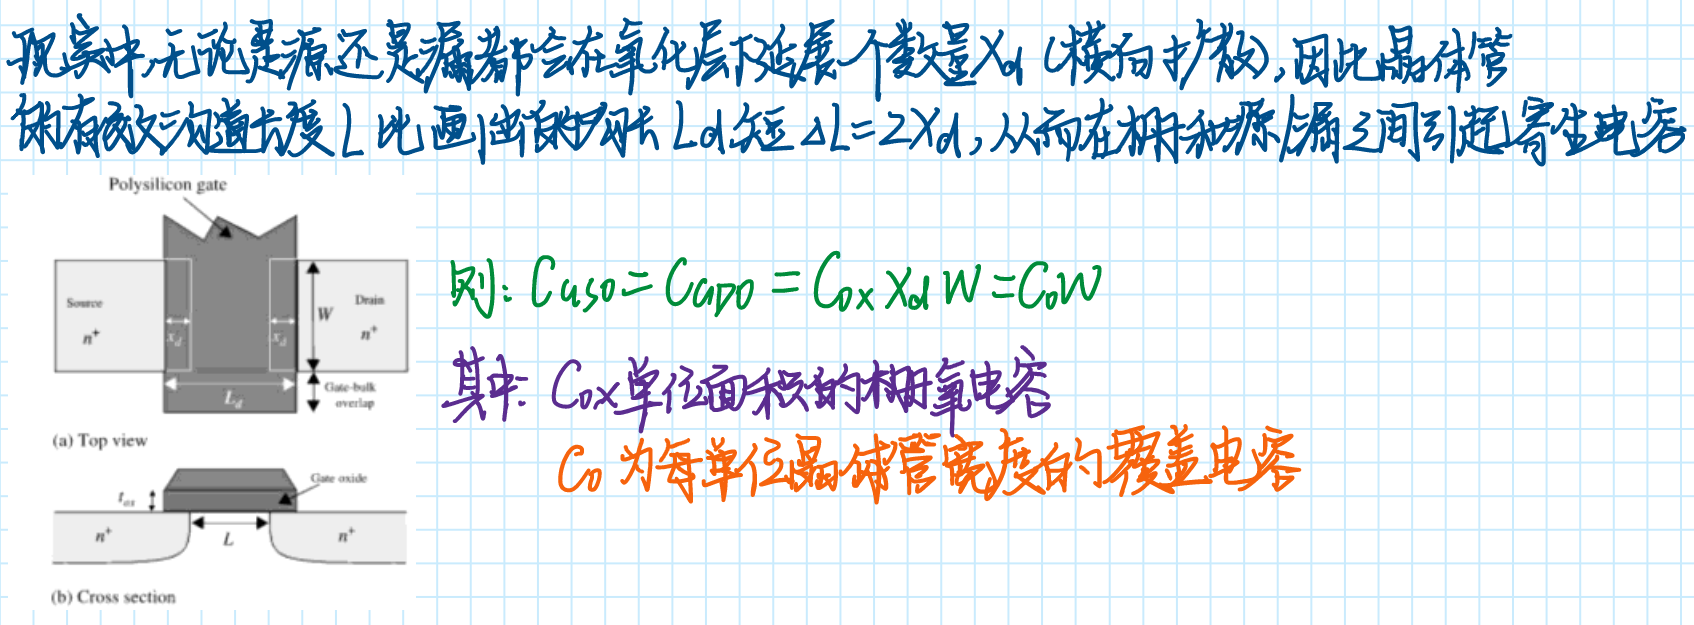 现实中,无论是源还是漏都会在氧化层下延展一个数量Xd(横向扩散),因此晶体管
的有效沟道长度L比画出的栅长Ld短△L=2Xd,从而在栅和源/漏之间引起寄生电容
Polysilicon gate
Source
Drain
W
n+
n+
xd
xd
Ld
Gate-bulk
overlap
(a) Top view
Gate oxide
tox
n+
L
n+
(b) Cross section
则: CGSO = CGDO = Cox Xd W = CoW
其中: Cox单位面积的栅氧电容
Co 为每单位晶体管宽度的覆盖电容